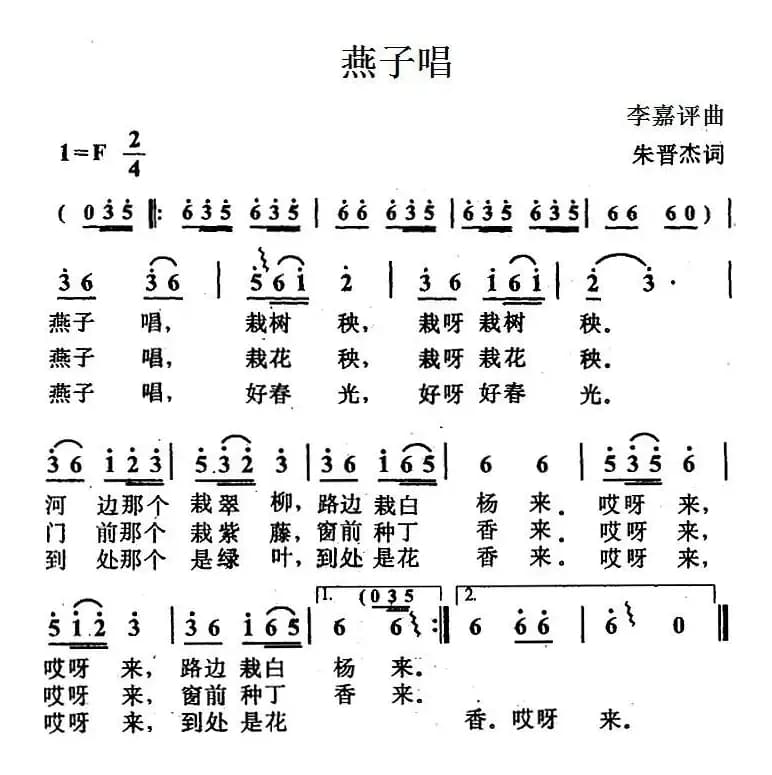 燕子唱
李嘉评曲
1=F 2/4
朱晋杰词
( 0 3 5 ‖: 6 3 5 6 3 5 | 6 6 6 3 5 | 6 3 5 6 3 5 | 6 6 6 0 ) |
3 6 3 6 | 5 6 1 2 | 3 6 1 6 1 | 2 3 · |
燕子 唱, 栽树 秧, 栽呀 栽树 秧。
燕子 唱, 栽花 秧, 栽呀 栽花 秧。
燕子 唱, 好春 光, 好呀 好春 光。
3 6 1 2 3 | 5 3 2 3 | 3 6 1 6 5 | 6 6 | 5 3 5 6 |
河 边那个 栽翠 柳, 路边 栽白 杨 来。 哎呀 来,
门 前那个 栽紫 藤, 窗前 种丁 香 来。 哎呀 来,
到 处那个 是绿 叶, 到处 是花 香 来。 哎呀 来,
1. ( 0 3 5 2.
5 1 2 3 | 3 6 1 6 5 | 6 6 :‖ 6 6 6 | 6 0 ‖
哎呀 来, 路边 栽白 杨 来。
哎呀 来, 窗前 种丁 香 来。
哎呀 来, 到处 是花 香。哎呀 来。